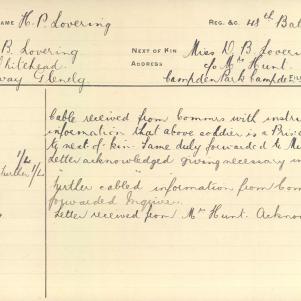 NAME H. P. Lovering REG. &C. 48th Bat
B. Lovering NEXT OF KIN Miss D B Lover
Whitehead ADDRESS c/o Mrs Hunt
way Glenelg Campden Park Campde
Cable received from Commrs with instr
information that above soldier is a Pris
to next of kin. Same duly forwarded to Mi
Letter acknowledged giving necessary in
"Further cabled" information from Com
forwarded
Letter received from Mrs Hunt. Ackno